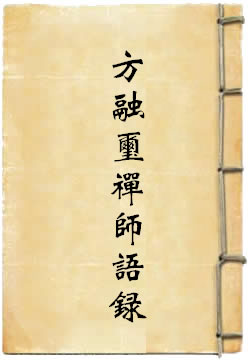 方融璽禪師語録